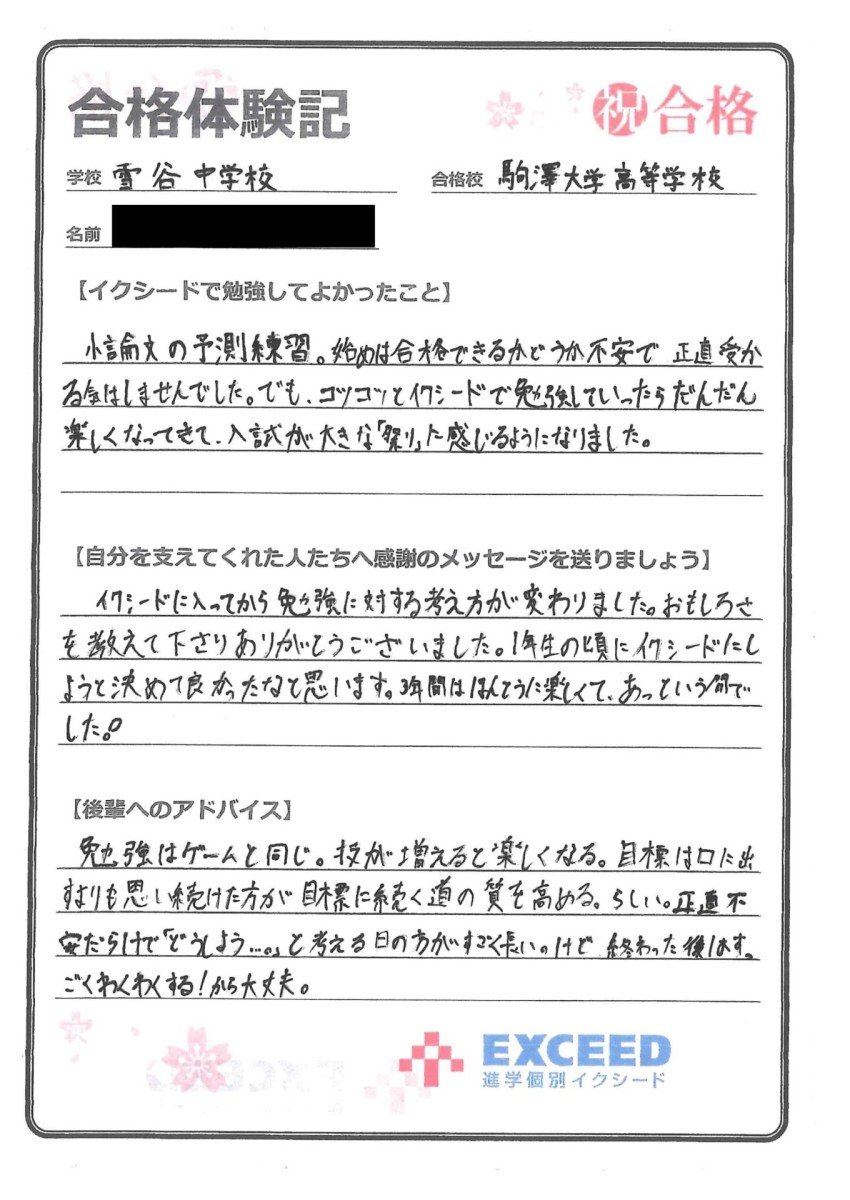 合格体験記
祝 合格
学校 雪谷中学校
合格校 駒澤大学高等学校
名前
【イクシードで勉強してよかったこと】
小論文の予測練習。始めは合格できるかどうか不安で 正直受か
る気はしませんでした。でも、コツコツとイクシードで勉強していったらだんだん
楽しくなってきて、入試が大きな「祭り」に感じるようになりました。
【自分を支えてくれた人たちへ感謝のメッセージを送りましょう】
イクシードに入ってから勉強に対する考え方が変わりました。おもしろさ
を教えて下さりありがとうございました。1年生の頃にイクシードにし
ようと決めて良かったなと思います。3年間はほんとうに楽しくて、あっという間で
した。
【後輩へのアドバイス】
勉強はゲームと同じ。技が増えると楽しくなる。目標は口に出
すよりも思い続けた方が目標に続く道の質を高める。らしい。正直不
安だらけで「どうしよう…。」と考える日の方がすごく長い。けど 終わった後はす
ごくわくわくする!から大丈夫。
EXCEED
進学個別イクシード